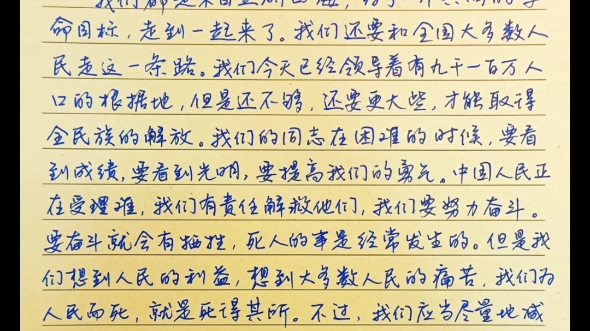 我们都是来自
命目标，走到一起来了。我们还要和全国大多数人
民走这一条路。我们今天已经领导着有九千一百万人
口的根据地，但是还不够，还要更大些，才能取得
全民族的解放。我们的同志在困难的时候，要看
到成绩，要看到光明，要提高我们的勇气。中国人民正
在受理难，我们有责任解救他们，我们要努力奋斗。
要奋斗就会有牺牲，死人的事是经常发生的。但是我
们想到人民的利益，想到大多数人民的痛苦，我们为
人民而死，就是死得其所。不过，我们应当尽量地减